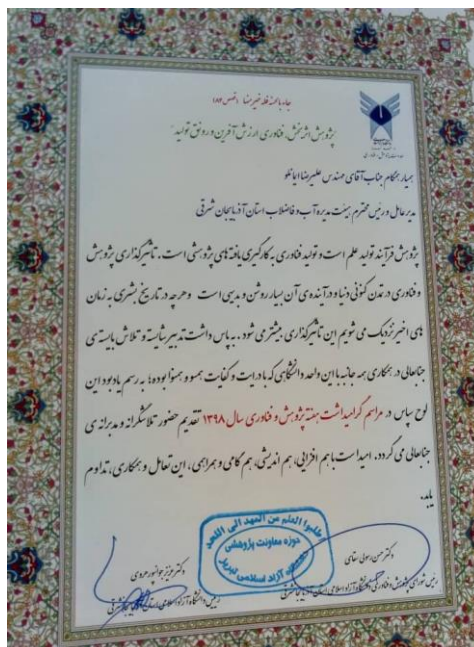 جاء بالحسنة فله خیر منها
"پژوهش اثربخش، فناوری ارزش آفرین و رونق تولید"
همیار همگام جناب آقای مهندس علیرضا ایمانلو
مدیر عامل و رئیس محترم هیئت مدیره آب و فاضلاب استان آذربایجان شرقی
پژوهش فرآیند تولید علم است و تولید فناوری به کارگیری یافته های پژوهشی است. تاثیرگذاری پژوهش
و فناوری در تمدن کنونی دنیا و در آینده ی آن بسیار روشن و بدیهی است و هر چه در تاریخ بشری به زمان
های اخیر نزدیک می شویم این تاثیرگذاری بیشتر می شود. به پاس داشت تدبیر شایسته و تلاش بایسته ی
جنابعالی در همکاری همه جانبه با این واحد دانشگاهی که با درایت و کفایت همسو و همنوا بوده؛ به رسم یادبود این
لوح سپاس در مراسم گرامیداشت هفته پژوهش و فناوری سال ۱۳۹۸ تقدیم حضور تلاشگرانه و مدبرانه ی
جنابعالی می گردد. امید است با هم افزائی، هم اندیشی، هم گامی و همراهی، این تعامل و همکاری، تداوم
یابد.
اطلبوا العلم من المهد الی اللحد
حوزه معاونت پژوهشی
آزاد اسلامی تبریز
دکتر حسن رسولی سقای
دکتر عزیز جوانپور هروی
رئیس شورای پژوهش و فناوری دانشگاه آزاد اسلامی استان آذربایجان شرقی
رئیس دانشگاه آزاد اسلامی استان آذربایجان شرقی